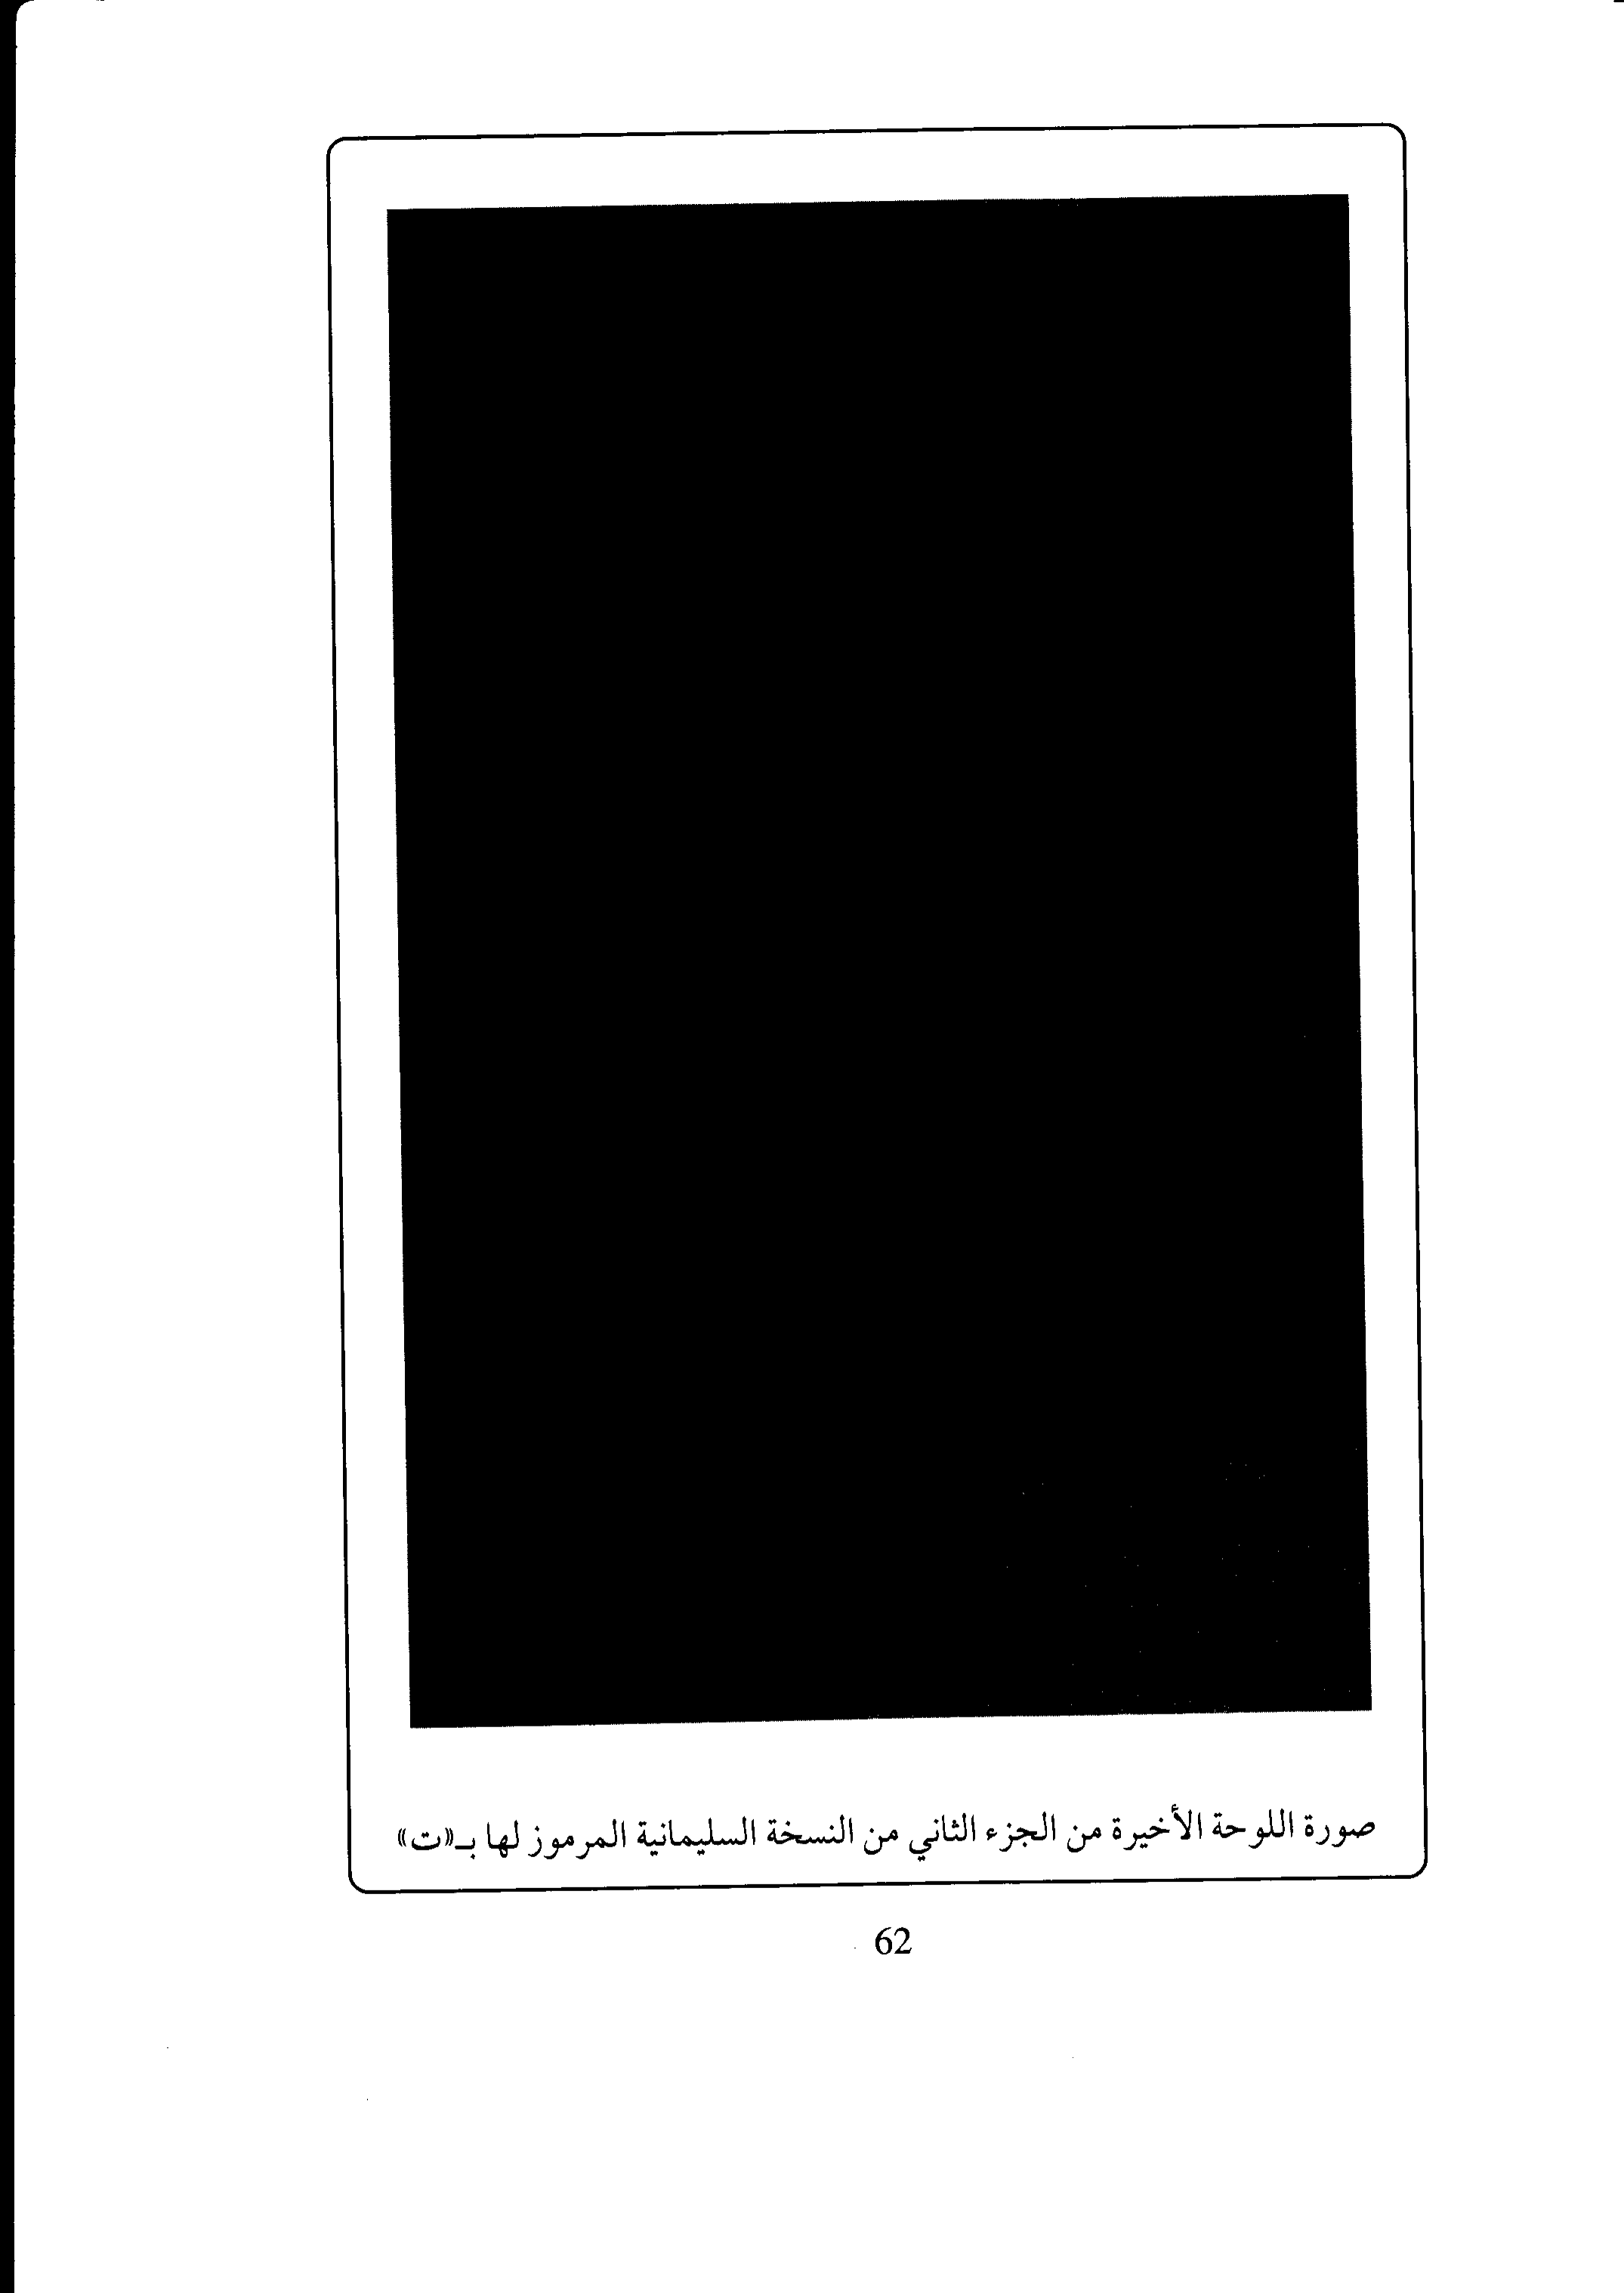 صورة اللوحة الأخيرة من الجزء الثاني من النسخة السليمانية المرموز لها بـ«ت»
62